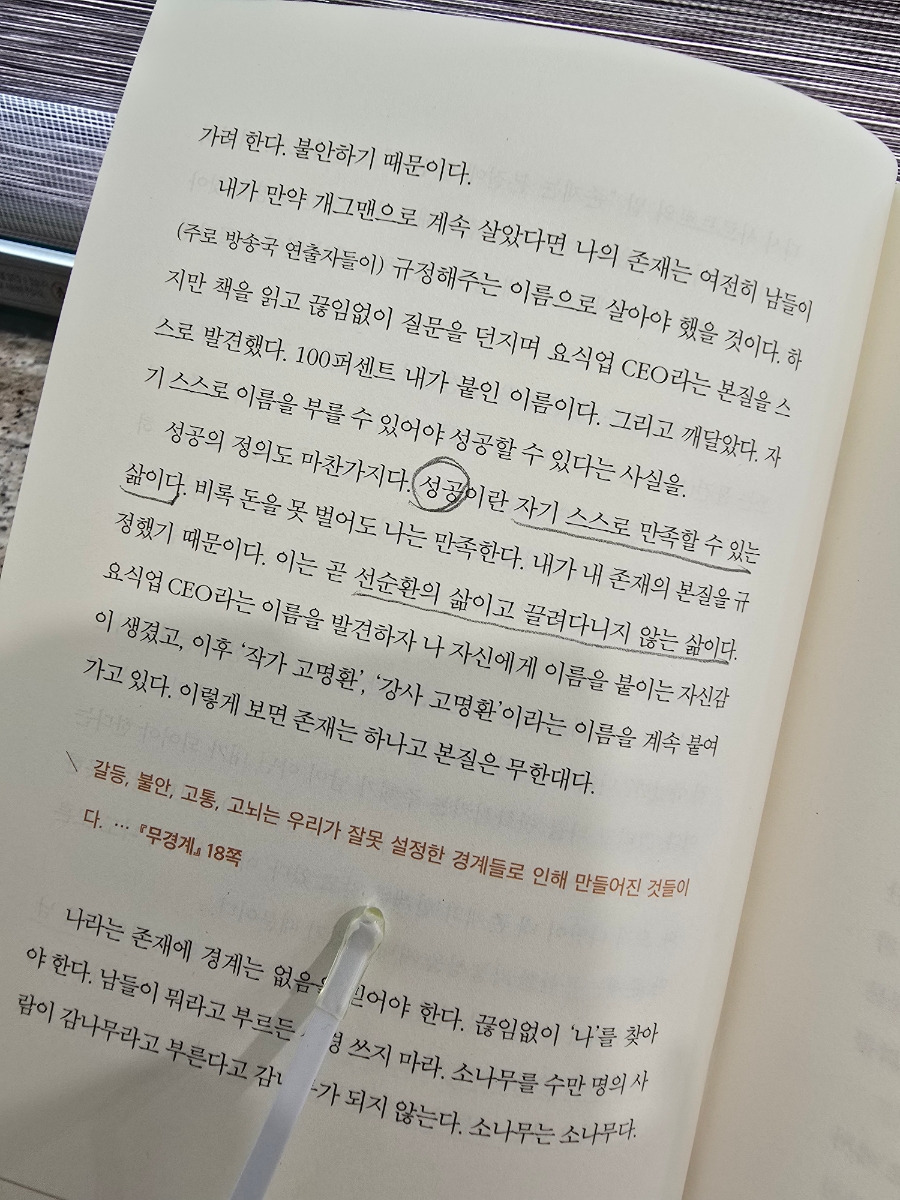 가려 한다. 불안하기 때문이다.
내가 만약 개그맨으로 계속 살았다면 나의 존재는 여전히 남들이
(주로 방송국 연출자들이) 규정해주는 이름으로 살아야 했을 것이다. 하
지만 책을 읽고 끊임없이 질문을 던지며 요식업 CEO라는 본질을 스
스로 발견했다. 100퍼센트 내가 붙인 이름이다. 그리고 깨달았다. 자
기 스스로 이름을 부를 수 있어야 성공할 수 있다는 사실을.
성공의 정의도 마찬가지다. 성공이란 자기 스스로 만족할 수 있는
삶이다. 비록 돈을 못 벌어도 나는 만족한다. 내가 내 존재의 본질을 규
정했기 때문이다. 이는 곧 선순환의 삶이고 끌려다니지 않는 삶이다.
요식업 CEO라는 이름을 발견하자 나 자신에게 이름을 붙이는 자신감
이 생겼고, 이후 ‘작가 고명환’, ‘강사 고명환’이라는 이름을 계속 붙여
가고 있다. 이렇게 보면 존재는 하나고 본질은 무한대다.
갈등, 불안, 고통, 고뇌는 우리가 잘못 설정한 경계들로 인해 만들어진 것들이
다. … 『무경계』 18쪽
나라는 존재에 경계는 없음 믿어야 한다. 끊임없이 ‘나’를 찾아
야 한다. 남들이 뭐라고 부르든 쓰지 마라. 소나무를 수만 명의 사
람이 감나무라고 부른다고 가 되지 않는다. 소나무는 소나무다.